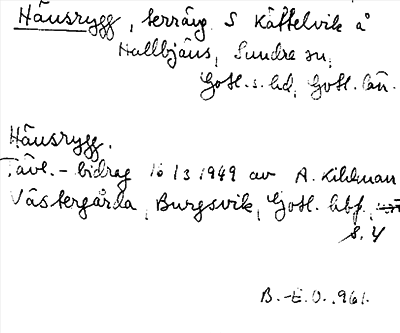 Häusrygg, terräng. S Kättelvik å
Hallbjäns, Sundre sn,
Gotl. s. hd, Gotl. län.
Häusrygg.
Tävl. - bidrag 16/3 1949 av A. Kihlman
Västergårda, Burgsvik, Gotl. hbf.,
s. 4
B. - E. O. 1961.